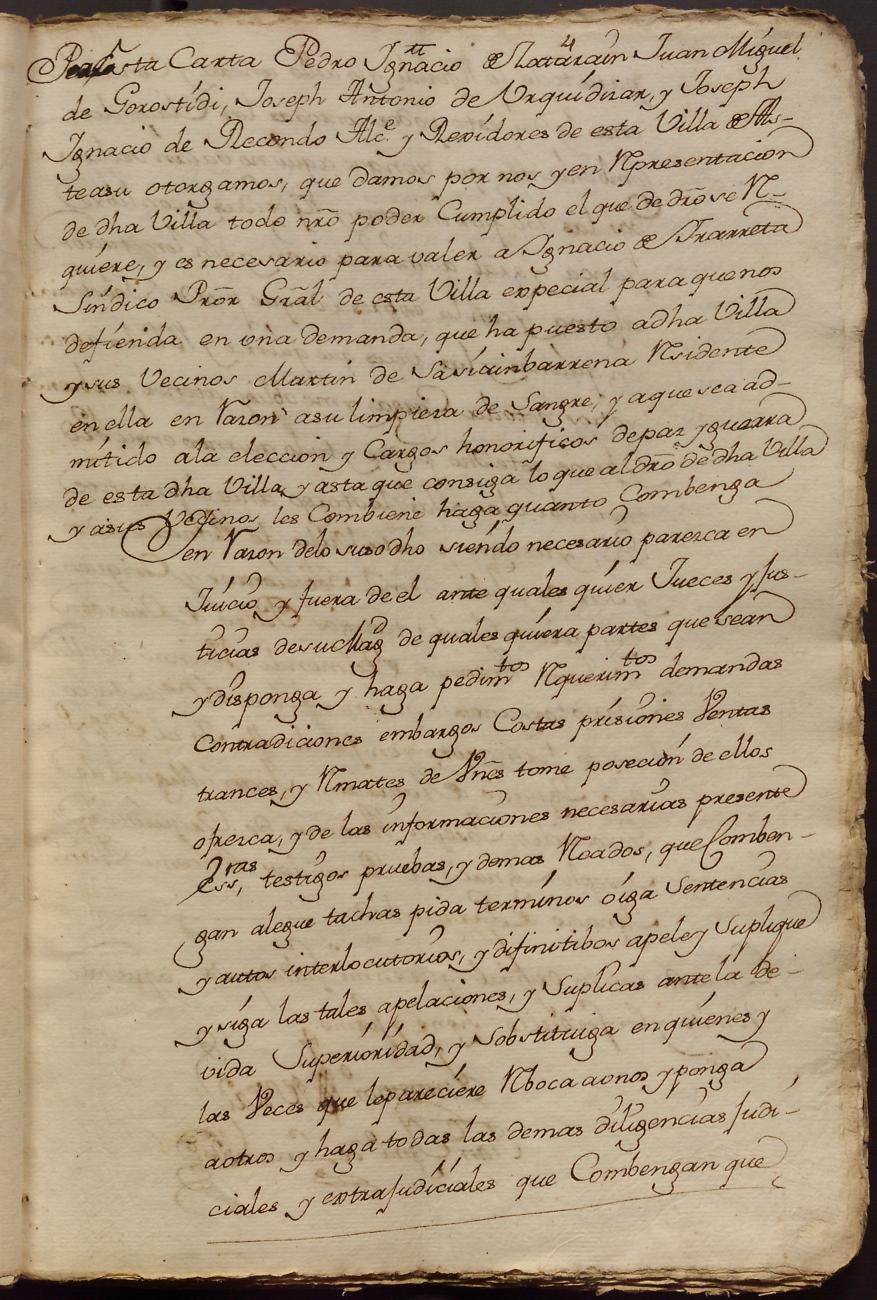 Por esta Carta Pedro Ignacio de Zatarain Juan Miguel
de Gorostidi, Joseph Antonio de Urquidizar, y Joseph
Ignacio de Recondo Alce. y Rexidores de esta Villa de As-
teasu otorgamos, que damos por nos y en Representacion
de dha Villa todo nro poder Cumplido el que de dro se Re-
quiere, y es necesario para valer a Ignacio de Irarreta
Sindico Pror Gral de esta Villa expecial para que nos
defienda en vna demanda, que ha puesto a dha Villa
y sus Vecinos Martin de Sasiainbarrena Residente
en ella en Razon a su limpieza de Sangre, y a que sea ad-
mitido ala eleccion y Cargos honorificos de paz y guerra
de esta dha Villa, y asta que consiga lo que al dro de dha Villa
y a sus Vecinos les Combiene haga quanto Combenga
en Razon delo susodho siendo necesario parezca en
Juicio y fuera de el ante quales quier Jueces y Jus-
ticias de su Magd de quales quiera partes que sean
y disponga y haga pedimtos Requerimtos demandas
contradiciones embargos Costas prisiones Ventas
trances, y Remates de Vnes tome posecion de ellos
ofrezca, y de las informaciones necesarias presente
Essras, testigos pruebas, y demas Recados, que Comben-
gan alegue tachas pida terminos oiga Sentencias
y autos interlocutorios, y difinitibos apele y Suplique
y siga las tales apelaciones, y Suplicas ante la de-
vida Superioridad, y Sobstituiga en quienes y
las Veces que le pareciere Reboca a vnos y ponga
a otros y haga todas las demas diligencias Judi-
ciales y extraJudiciales que Combengan que